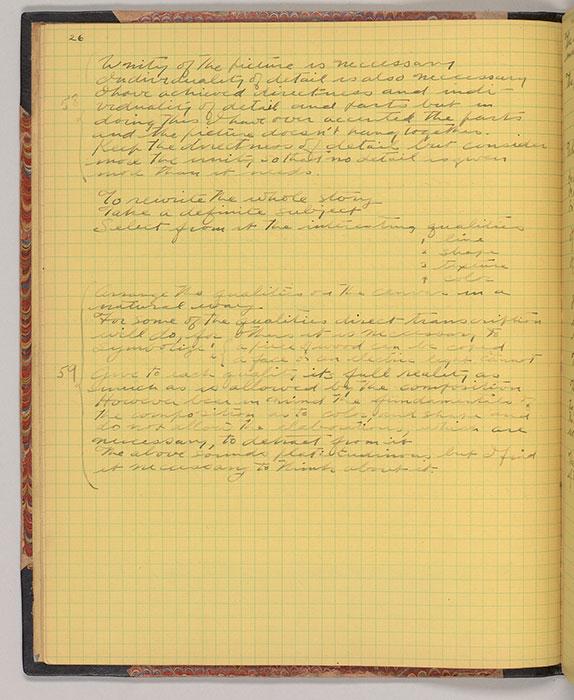 26
Unity of the picture is neccessary
Individuality of detail is also neccessary
58
I have achieved directness and indi-
viduality of detail and parts but in
doing this I have over accented the parts
and the picture doesn't hang together.
Keep the directness of detail but consider
more the unity, so that no detail is given
more than it needs.
To rewrite the whole story
Take a definite subject
Select from it the interesting qualities
1 line
2 shape
3 texture
4 color
Arrange the qualities on the canvas in a
natural way.
For some of the qualities direct transcription
will do, for others it is necessary to
symbolize; a piece of wood can be
a face in an electric light cannot
59
Give to each quality its full reality as
much as is allowed by the composition
However bear in mind the fundamentals of
the composition as to color and shape and
do not allow the elaborations, which are
necessary, to detract from it
The above sounds platitudinous but I find
it necessary to think about it.